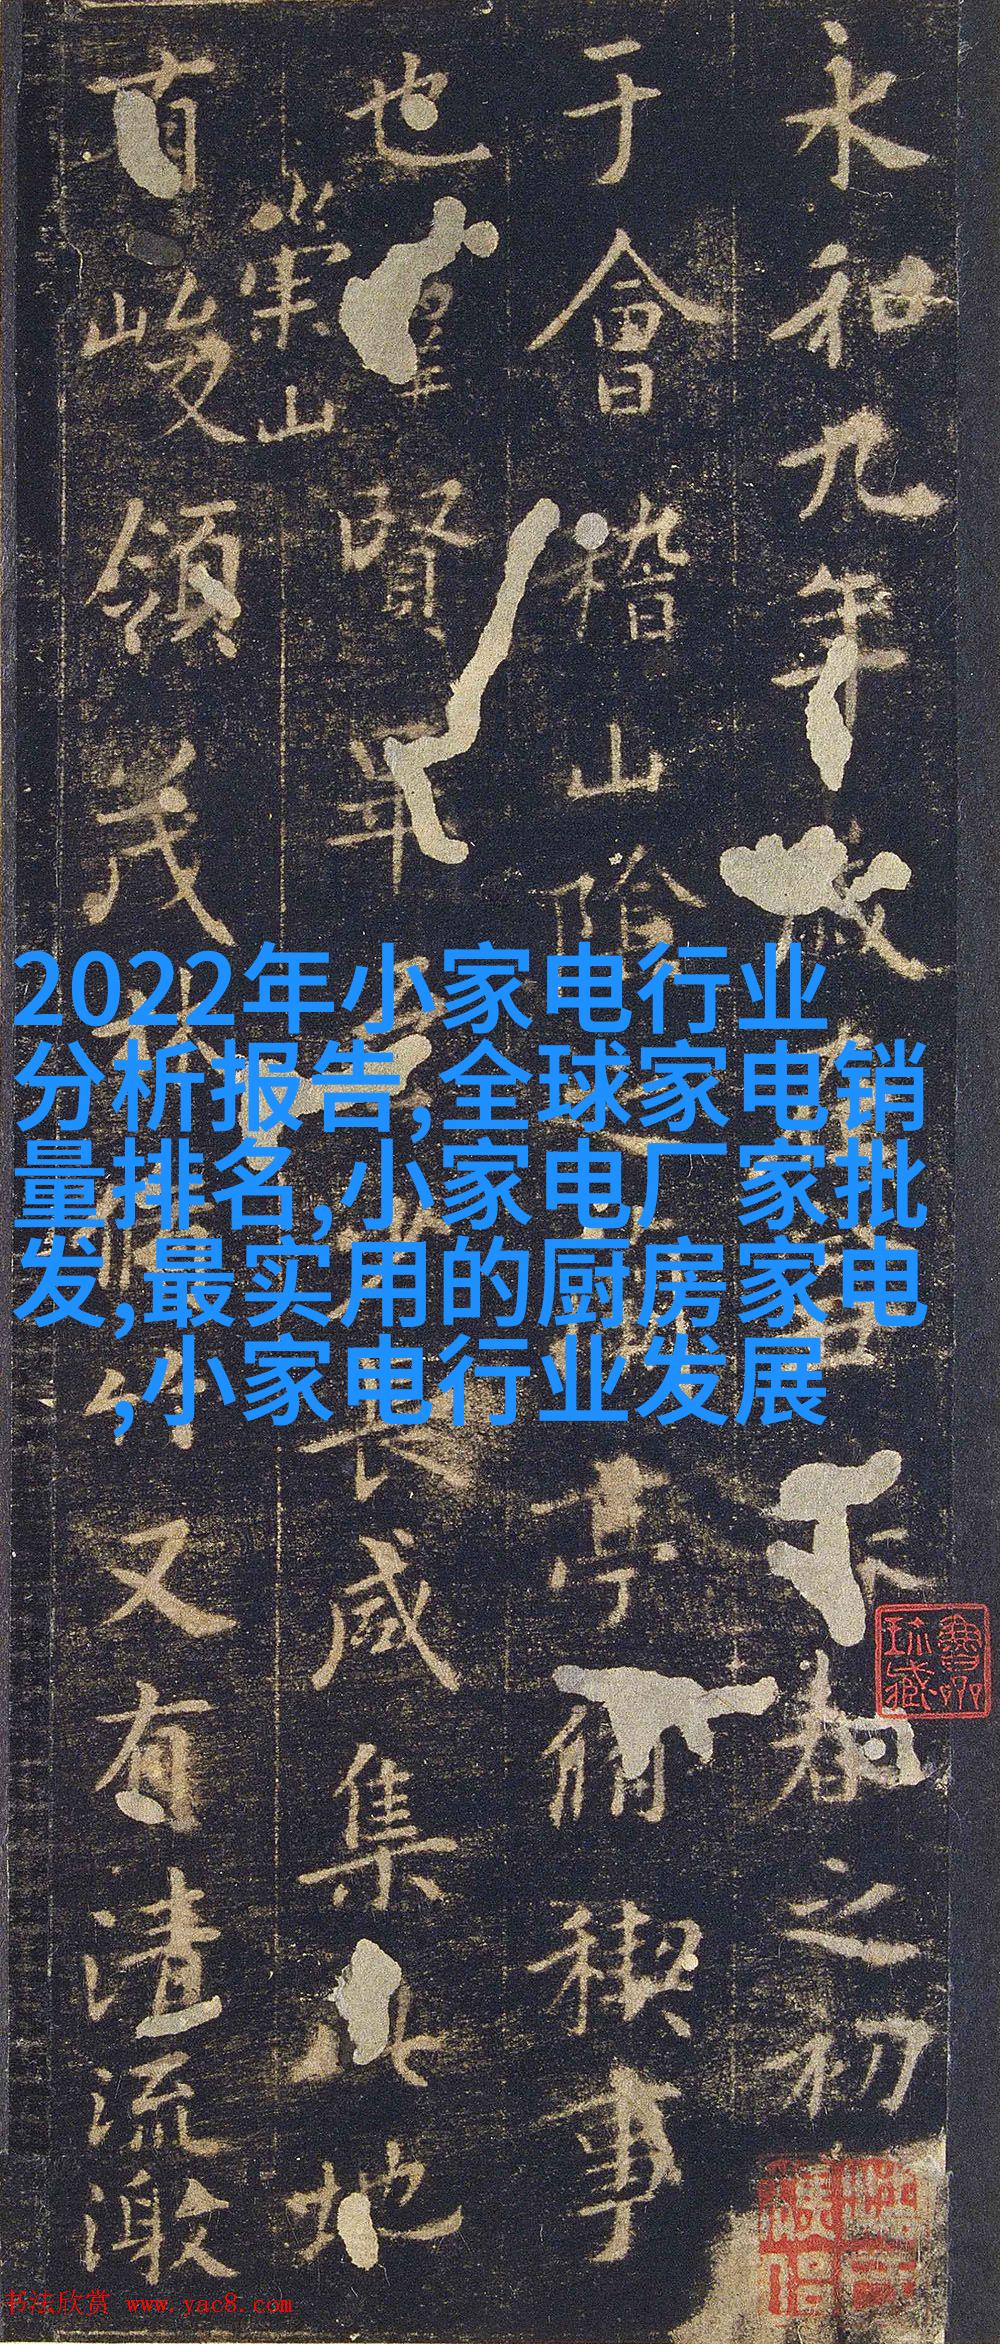 永和九年歲春之初
于會稽山陰亭脩禊事
也羣賢畢長咸集此地
有崇山峻領茂林竹又有清流激
2022年小家电行业
分析报告,全球家电销
量排名,小家电厂家批
发,最实用的厨房家电
,小家电行业发展
书法欣赏 www.yac8.com